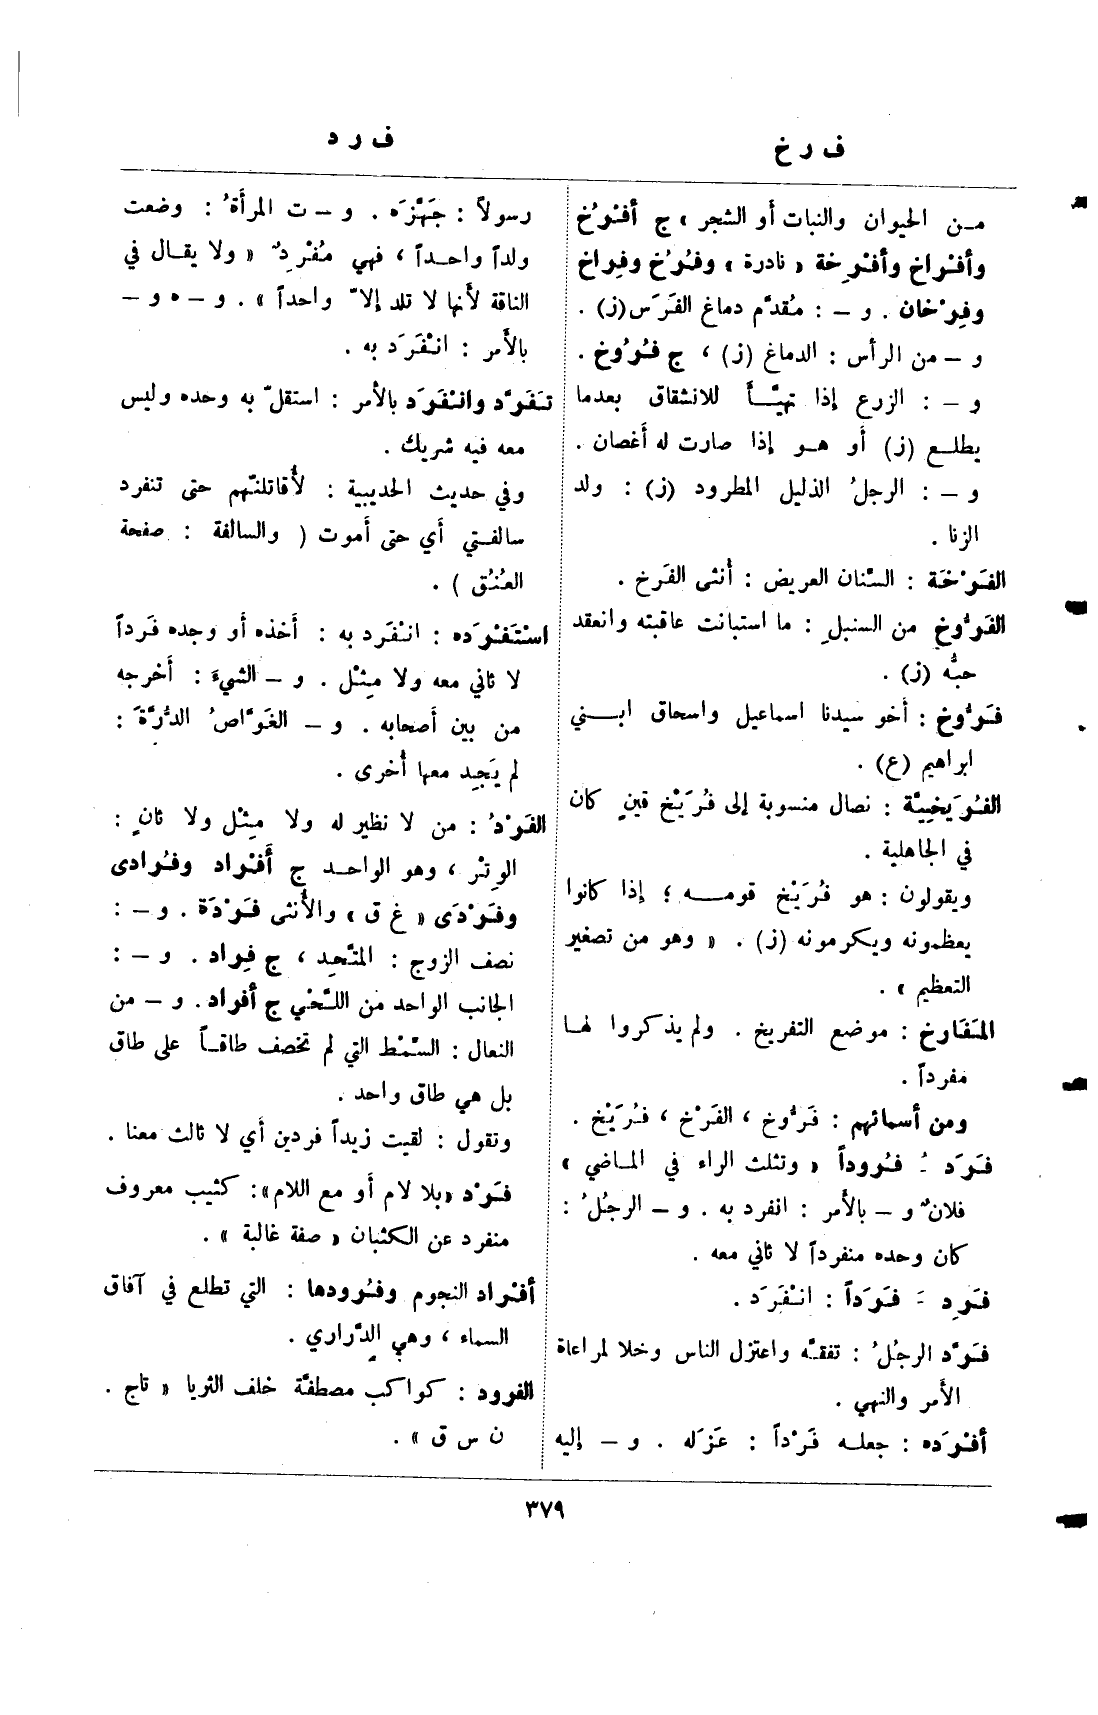 ف ر خ
من الحيوان والنبات أو الشجر » ج أفْرُخ
وأفْراخ وأفْرِخة « نادرة » وفُرُخ وفِراخ
وفِرْخان . و – : مُقدَّم دماغ الفَرَس (ز) .
و – من الرأس : الدماغ (ز) ، ج فُرُوخ .
و – : الزرع إذا تهيّأ للانشقاق بعدما
يطلع (ز) أو هو إذا صارت له أغصان .
و – : الرجلُ الذليل المطرود (ز) : ولد
الزنا .
الفَرْخَة : السِّنان العريض : أنثى الفَرخ .
الفَرُّوخ من السنبلِ : ما استبانت عاقبته وانعقد
حبُّه (ز) .
فَرُّوخ : أخو سيدنا اسماعيل واسحاق ابني
ابراهيم (ع) .
الفُرَيخِيَّة : نصال منسوبة إلى فُرَيْخ قينٍ كان
في الجاهلية .
ويقولون : هو فُرَيْخ قومه ؛ إذا كانوا
يعظمونه ويكرمونه (ز) . « وهو من تصغير
التعظيم » .
المَفَارخ : موضع التفريخ . ولم يذكروا لها
مفرداً .
ومن أسمائهم : فَرُّوخ ، الفَرْخ ، فُرَيْخ .
فَرَد ـُ فُروداً « وتثلث الراء في الماضي »
فلانٌ و – بالأمر : انفرد به . و – الرجلُ :
كان وحده منفرداً لا ثاني معه .
فَرِد ـَ فَرَداً : انْفَرَد .
فَرَّد الرجُلُ : تفقَّه واعتزل الناس وخلا لمراعاة
الأمر والنهي .
أفْرَده : جعله فَرْداً : عَزَله . و – إليه
ف ر د
رسولاً : جَهَّزَه . و – ت المرأةُ : وضعت
ولداً واحداً ، فهي مُفْرِدٌ « ولا يقال في
الناقة لأنها لا تلد إلاّ واحداً » . و – ه و –
بالأمر : انْفَرَد به .
تَفَرَّد وانْفَرَد بالأمر : استقلّ به وحده وليس
معه فيه شريك .
وفي حديث الحديبية : لأُقاتلنّهم حتى تنفرد
سالفتي أي حتى أموت ( والسالفة : صفحة
العُنُق ) .
اسْتَفْرَده : انْفَرد به : أخذه أو وجده فَرداً
لا ثاني معه ولا مِثْل . و – الشيءَ : أخرجه
من بين أصحابه . و – الغَوَّاصُ الدُّرَّةَ :
لم يَجِد معها أخرى .
الفَرْدُ : من لا نظير له ولا مِثْل ولا ثانٍ :
الوِتْر ، وهو الواحد ج أَفْراد وفُرادى
وفَرْدَى « غ ق » والأنثى فَرْدَة . و – :
نصف الزوج : المتَّحِد ، ج فِراد . و – :
الجانب الواحد من اللَّحْي ج أفراد . و – من
النعال : السِّمْط التي لم تخصف طاقاً على طاق
بل هي طاق واحد .
وتقول : لقيت زيداً فردين أي لا ثالث معنا .
فَرْد « بلا لام أو مع اللام » : كثيب معروف
منفرد عن الكثبان « صفة غالبة » .
أفْراد النجوم وفُرودها : التي تطلع في آفاق
السماء ، وهي الدَّراري .
الفرود : كواكب مصطفّة خلف الثريا « تاج .
ن س ق » .
٣٧٩